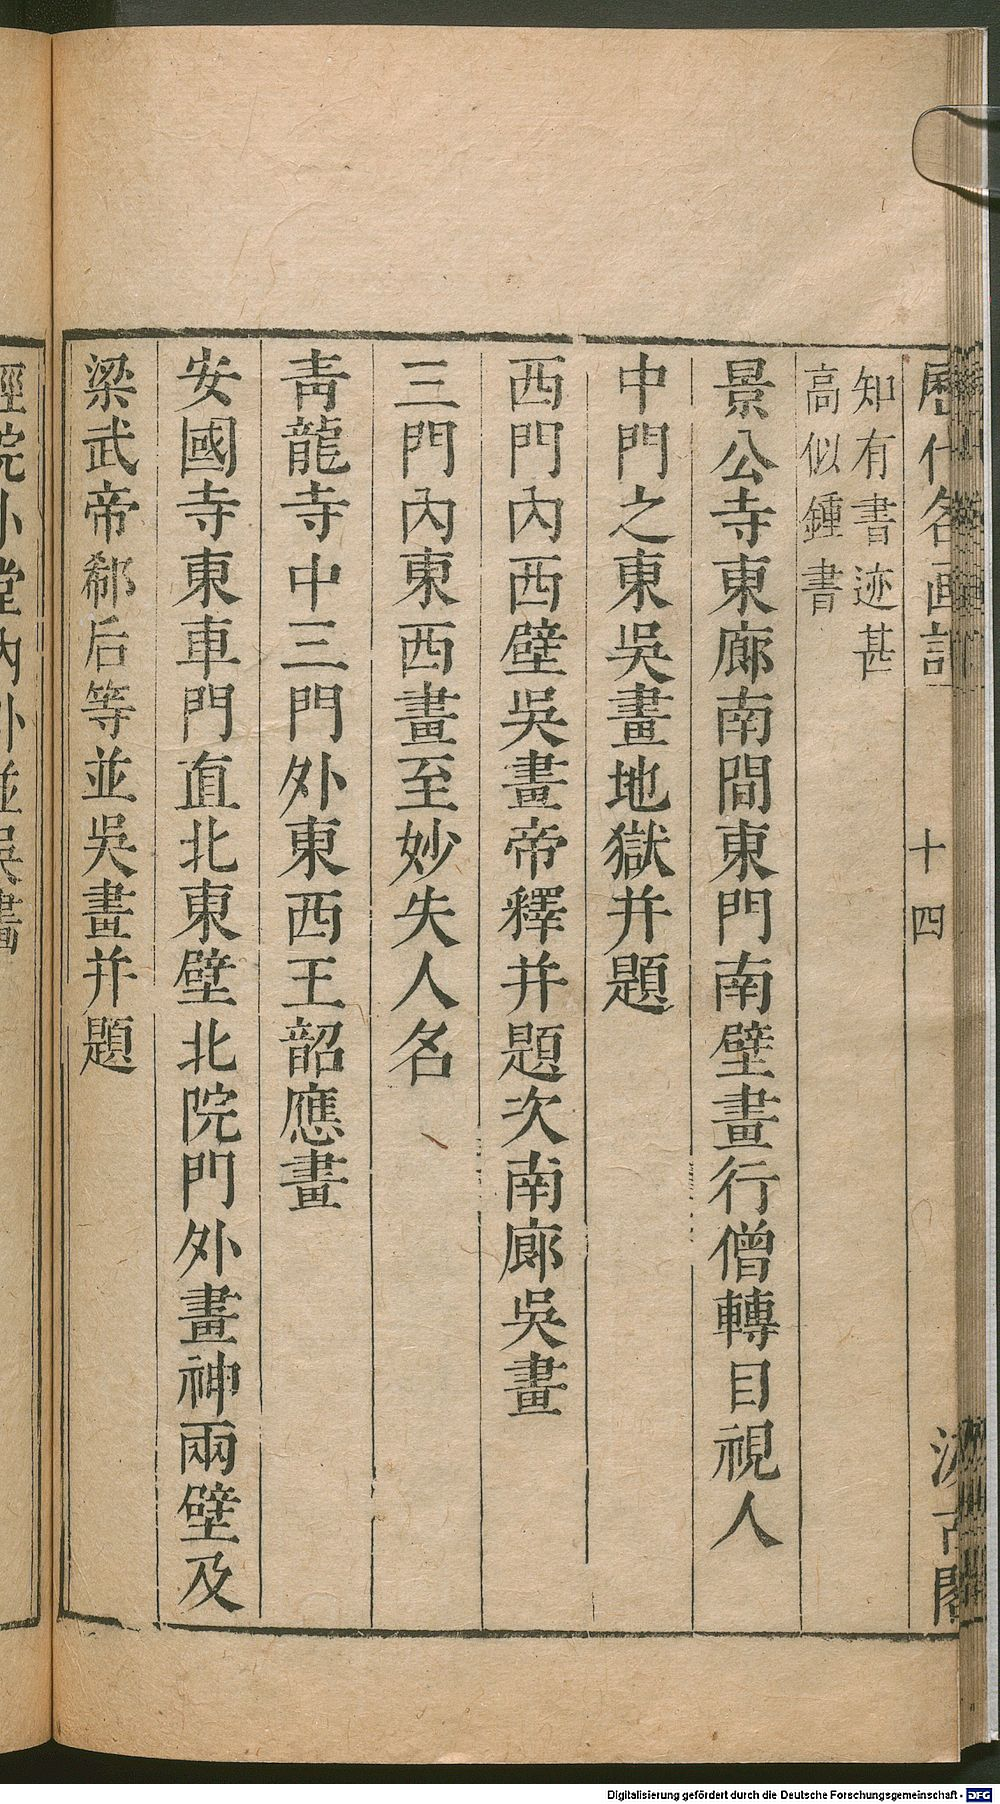 歷代名畫記
十四
汲古閣
知有書迹甚
高似鍾書
景公寺東廊南間東門南壁畫行僧轉目視人
中門之東吳畫地獄并題
西門內西壁吳畫帝釋并題次南廊吳畫
三門內東西畫至妙失人名
青龍寺中三門外東西王韶應畫
安國寺東車門直北東壁北院門外畫神兩壁及
梁武帝郗后等並吳畫并題
經院小堂內外並吳畫
Digitalisierung gefördert durch die Deutsche Forschungsgemeinschaft - DFG